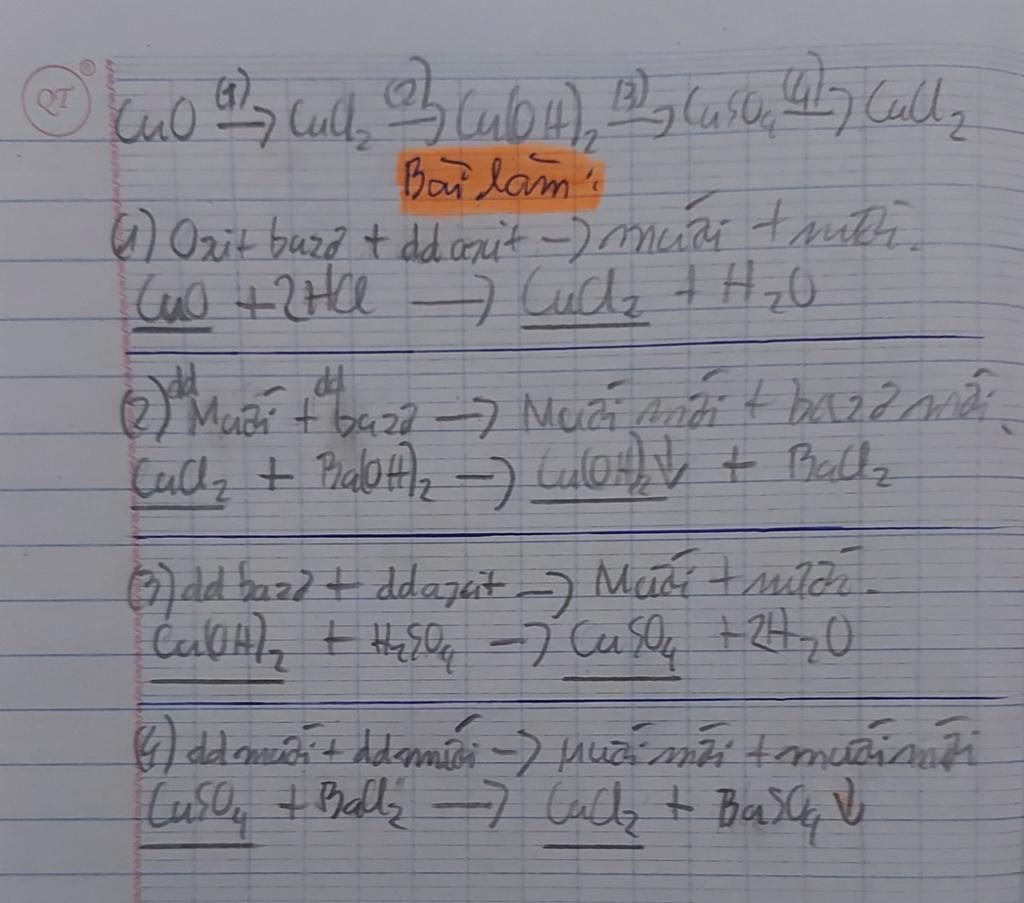 QT
CuO (1)→ CuCl₂ (2)→ Cu(OH)₂ (3)→ CuSO₄ (4)→ CuCl₂
Bài làm:
(1) Oxit bazơ + dd axit → muối + nước.
CuO + 2HCl → CuCl₂ + H₂O
(2) dd Muối + dd bazơ → Muối mới + bazơ mới.
CuCl₂ + Ba(OH)₂ → Cu(OH)₂↓ + BaCl₂
(3) dd bazơ + dd axit → Muối + nước.
Cu(OH)₂ + H₂SO₄ → CuSO₄ + 2H₂O
(4) dd muối + dd muối → Muối mới + muối mới
CuSO₄ + BaCl₂ → CuCl₂ + BaSO₄↓